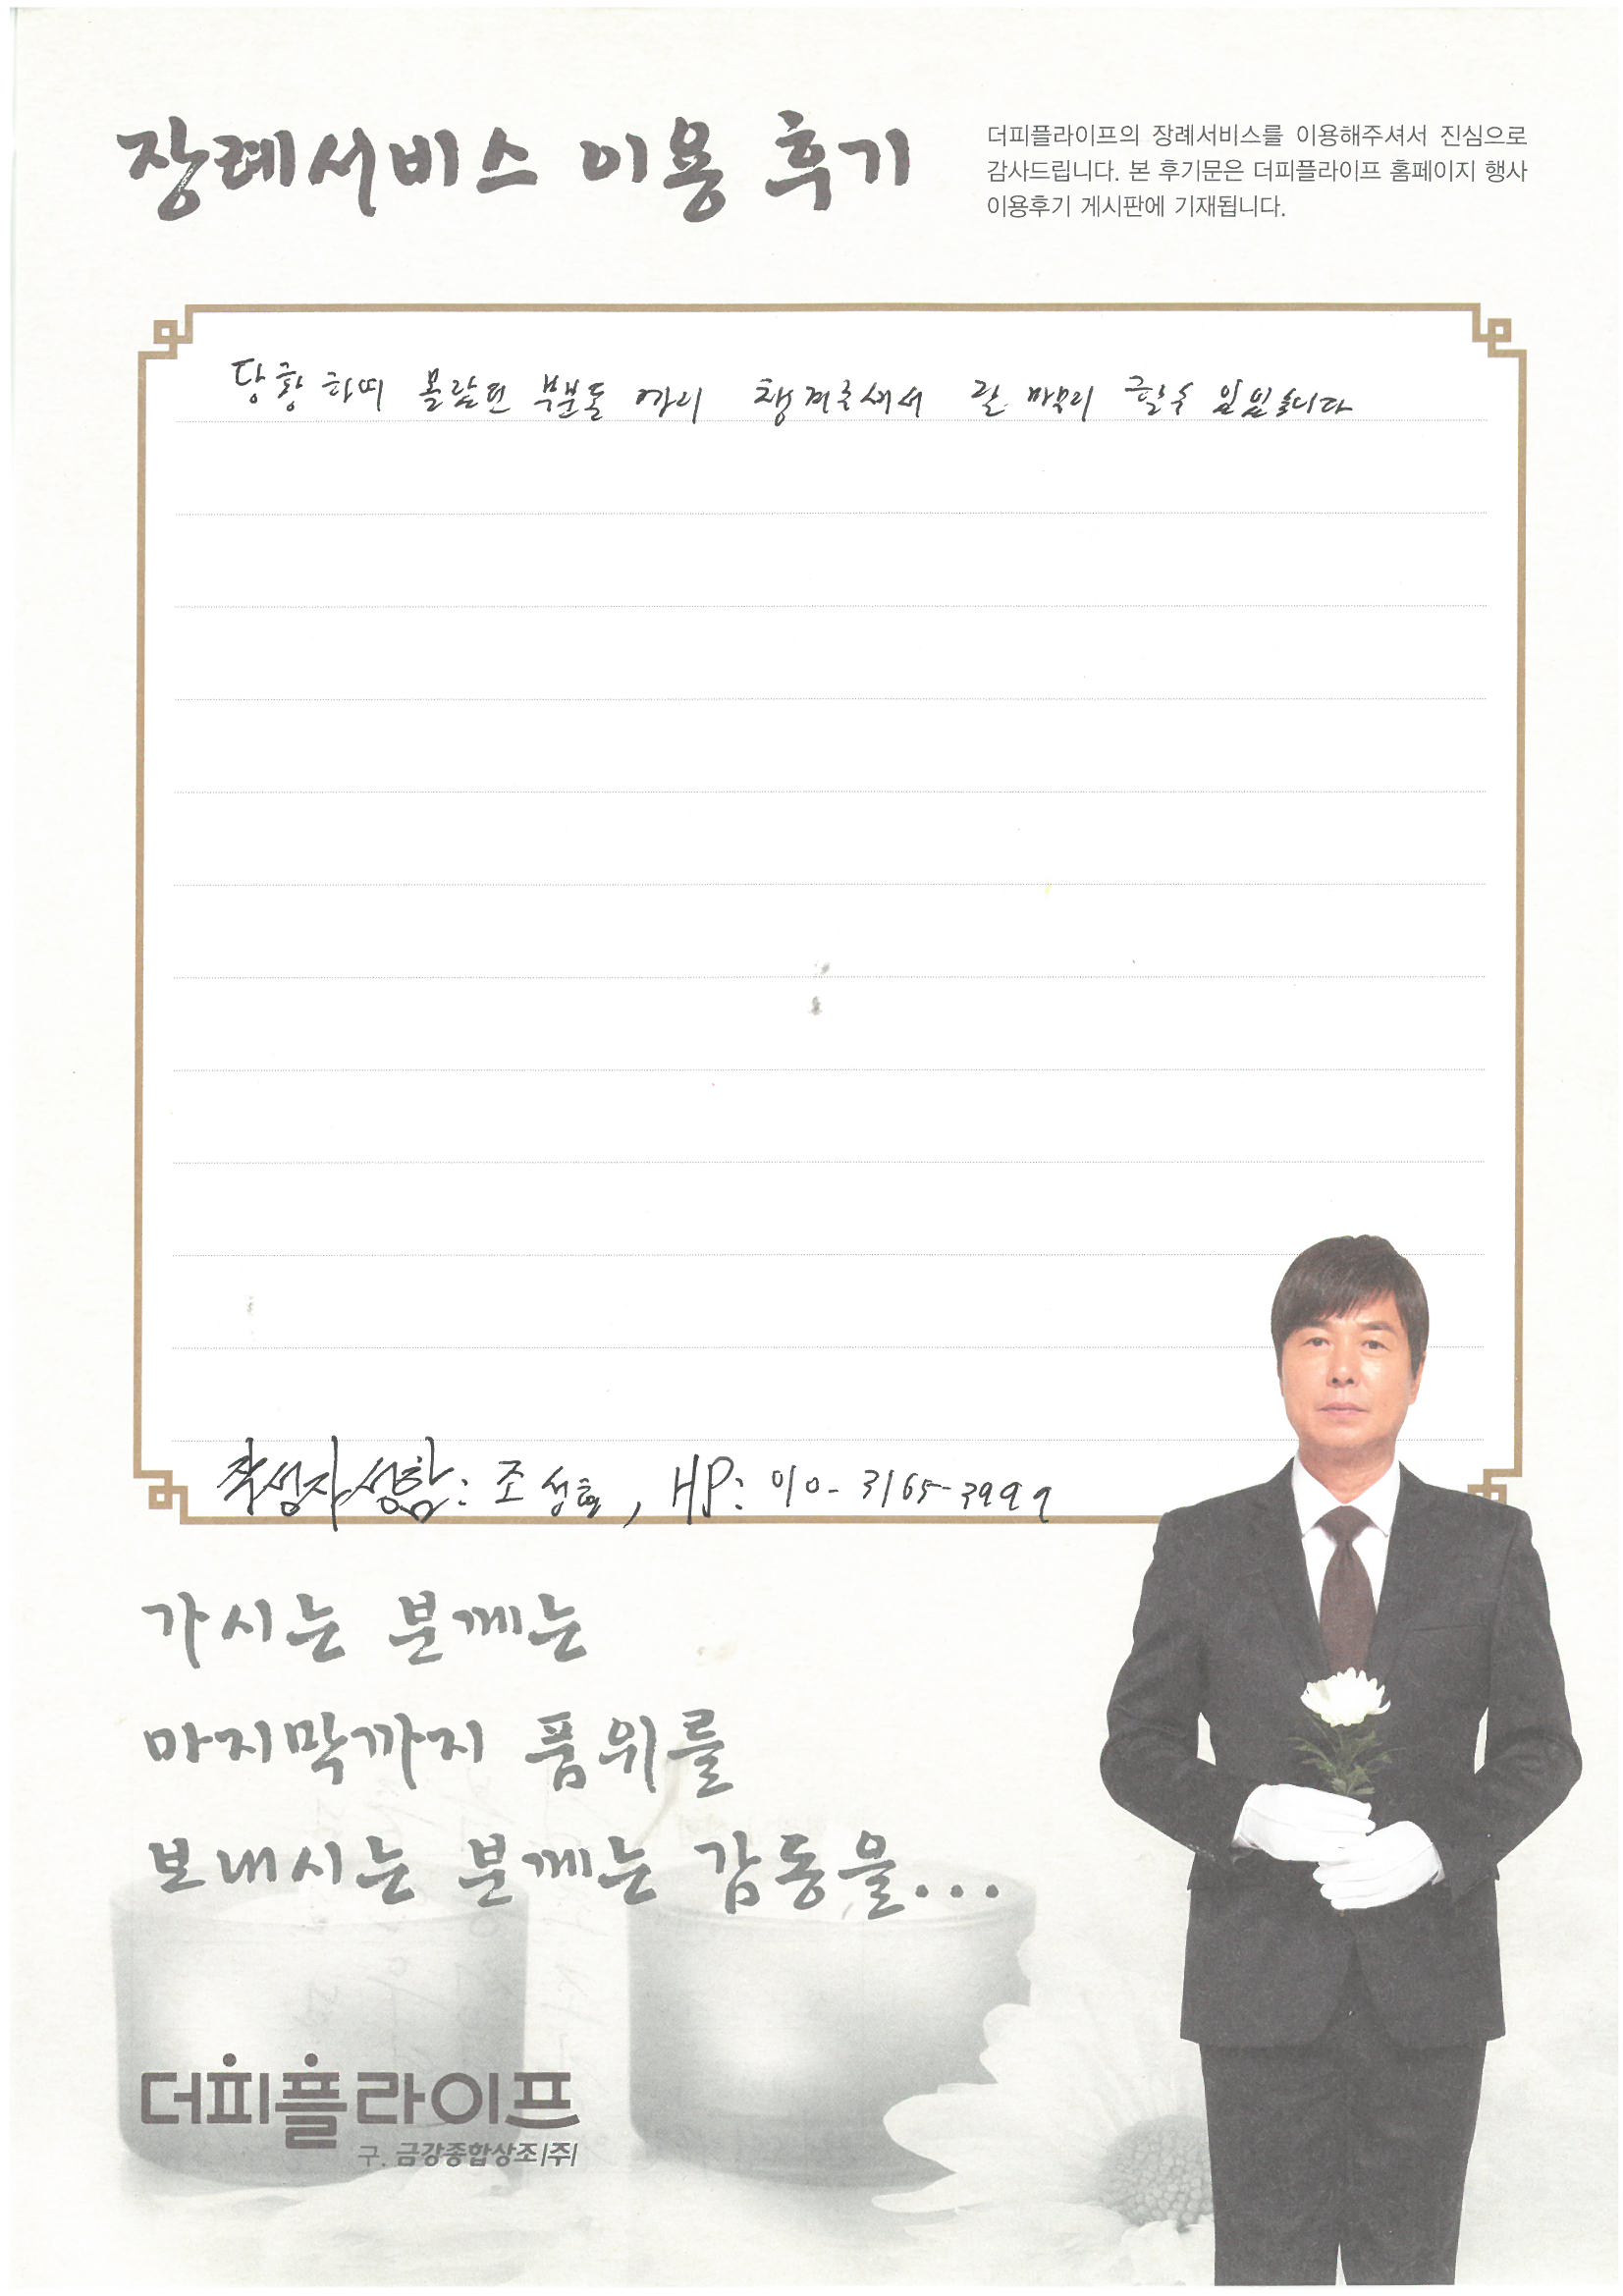 장례서비스 이용 후기
더피플라이프의 장례서비스를 이용해주셔서 진심으로
감사드립니다. 본 후기문은 더피플라이프 홈페이지 행사
이용후기 게시판에 기재됩니다.
당황 하며 몰랐던 부분들 까지 챙겨주셔서 잘 마무리 할수
작성자성함: 조성호, HP: 010-3165-3999
가시는 분께는
마지막까지 품위를
보내시는 분께는 감동을...
더피플라이프
구. 금강종합상조(주)